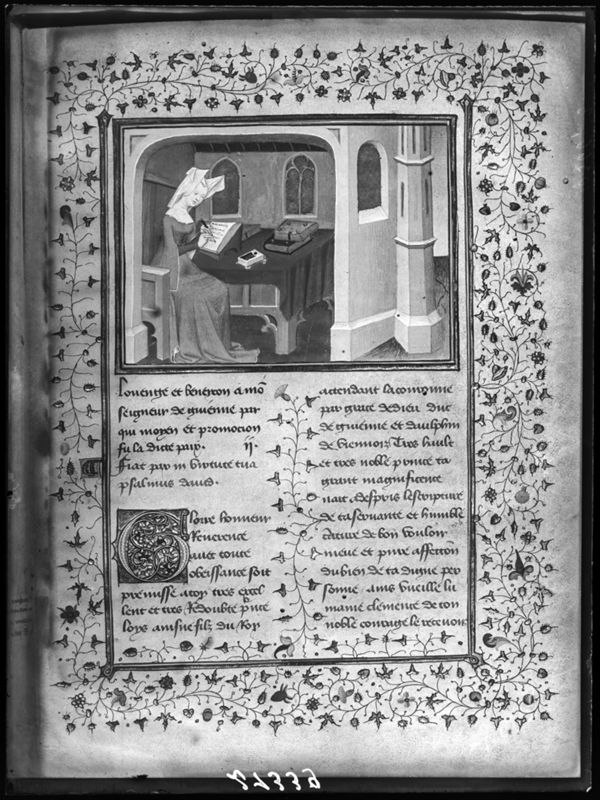 Louenge et beneicon a mõ
seigneur de guienne par
qui moyen et promocion
fu la dicte paix. ii.
Fiat pax in virtute tua
psalmus dauid.
Gloire honneur
Reuerence
auec toute
obeissance soit
premisse a toy tres excel
lent et tres Redoubte pñce
loys ainsne filz du Roy
actendant la couronne
par grace de dieu duc
de guienne et daulphin
de viennois Tres hault
et tres noble prince ta
grant magnificence
nait despris lescripture
de ta seruante et humble
creature de bon vouloir
meue et pure affection
du bien de ta digne per
sonne ains vueille lu
maine clemence de ton
noble courage le receuoir
27339